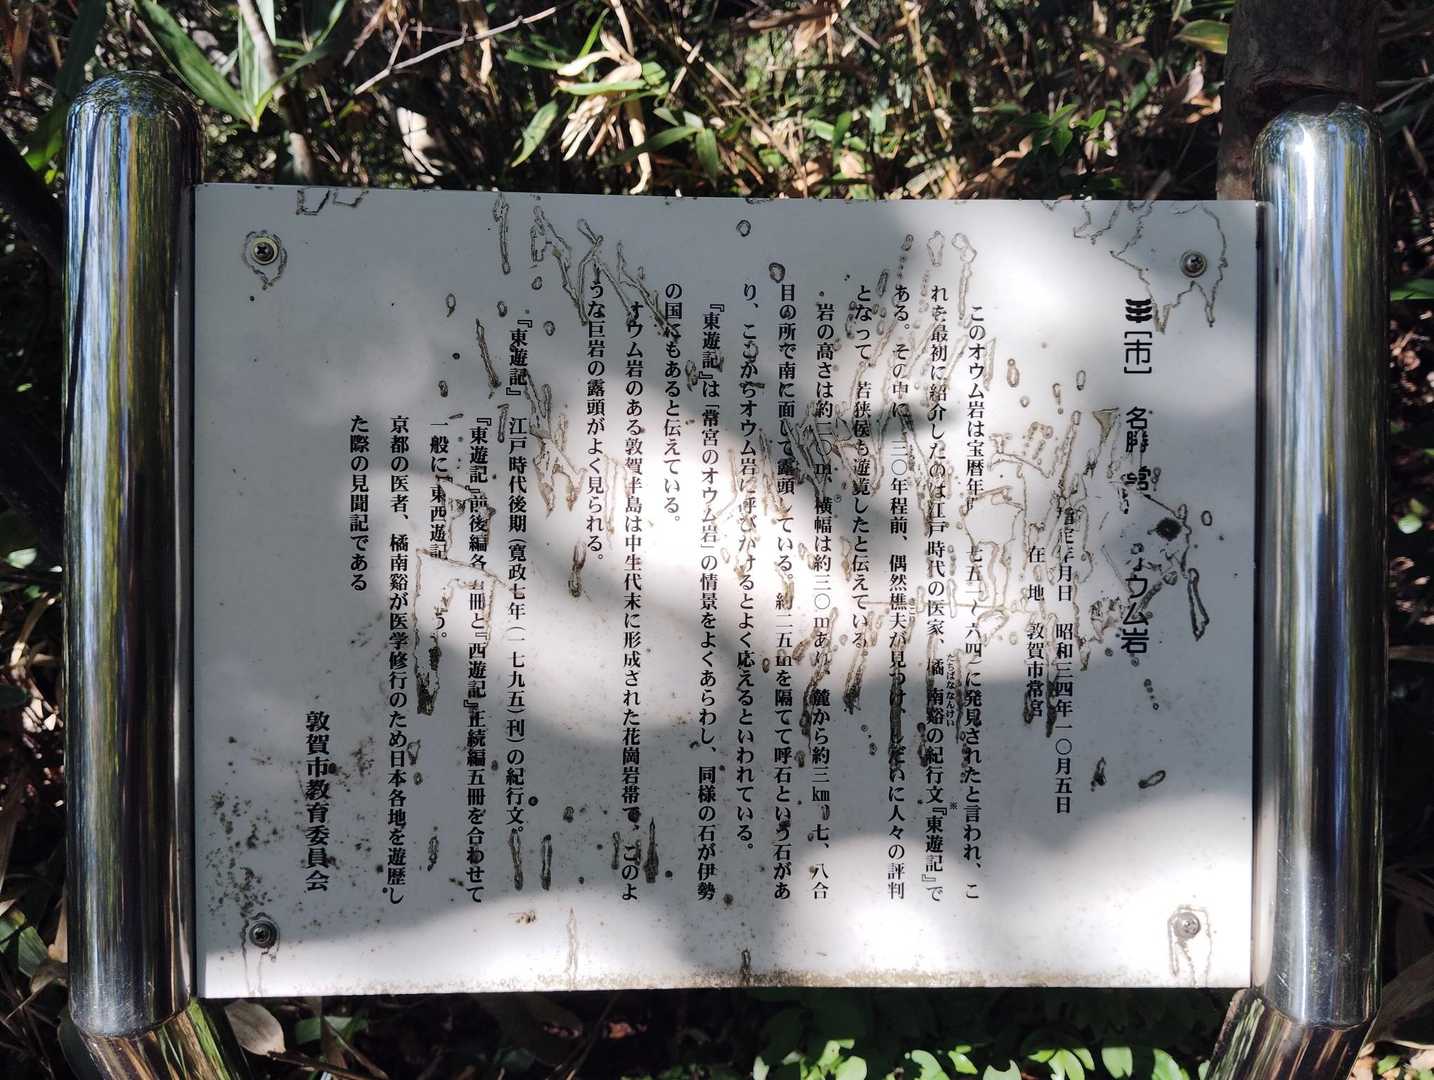 [市] 名勝 常宮 オウム岩
指定年月日 昭和三四年一〇月五日
在 地 敦賀市常宮
このオウム岩は宝暦年 七五一〜六四)に発見されたと言われ、こ
れを最初に紹介したのは江戸時代の医家、橘 南谿の紀行文『東遊記』で
たちばななんけい
※
ある。その中に、三〇年程前、偶然樵夫が見つけ、しだいに人々の評判
となって、若狭侯も遊覧したと伝えている
岩の高さは約二〇m、横幅は約三〇mあり、麓から約三km、七、八合
目の所で南に面して露頭している。約二五mを隔てて呼石という石があ
り、ここからオウム岩に呼びかけるとよく応えるといわれている。
『東遊記』は「常宮のオウム岩」の情景をよくあらわし、同様の石が伊勢
の国にもあると伝えている。
オウム岩のある敦賀半島は中生代末に形成された花崗岩帯で、このよ
うな巨岩の露頭がよく見られる。
『東遊記』 江戸時代後期(寛政七年(一七九五)刊)の紀行文。
『東遊記』前後編各 冊と『西遊記』正続編五冊を合わせて
一般に『東西遊記 う。
京都の医者、橘南谿が医学修行のため日本各地を遊歴し
た際の見聞記である
敦賀市教育委員会